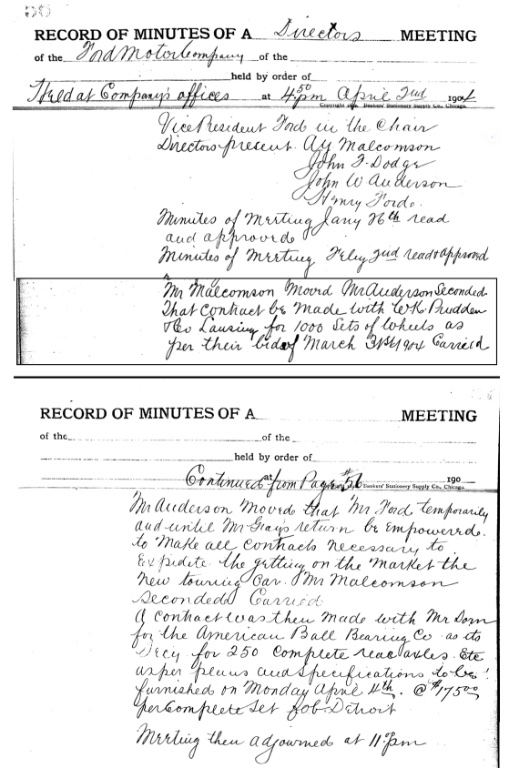 56
RECORD OF MINUTES OF A Directors MEETING
of the Ford Motor Company of the
held by order of
Held at Company's offices at 4 50 pm April 2nd 1904
Vice President Ford in the Chair
Directors present A Y Malcomson
John F. Dodge
John W Anderson
Henry Ford.
Minutes of Meeting Jany 26th read
and approved
Minutes of Meeting Feby 2nd read & approved
Mr Malcomson Moved Mr Anderson Seconded
That contract be made with W K Prudden
& Co Lansing for 1000 Sets of Wheels as
per their bid of March 31st 1904 Carried
RECORD OF MINUTES OF A MEETING
of the of the
held by order of
at 190
Continued from Page #56
Mr Anderson Moved that Mr Ford temporarily
and until Mr Gray's return be empowered
to Make all contracts necessary to
Expedite the getting on the market the
New touring Car. Mr Malcomson
Seconded Carried
A contract was then Made with Mr Dorn
for the American Ball Bearing Co as its
Secy for 250 complete rear axles Etc
as per plans and specifications to be
furnished on Monday April 4th. @ $175 00
per Complete Set f.o.b. Detroit
Meeting then adjourned at 11 pm